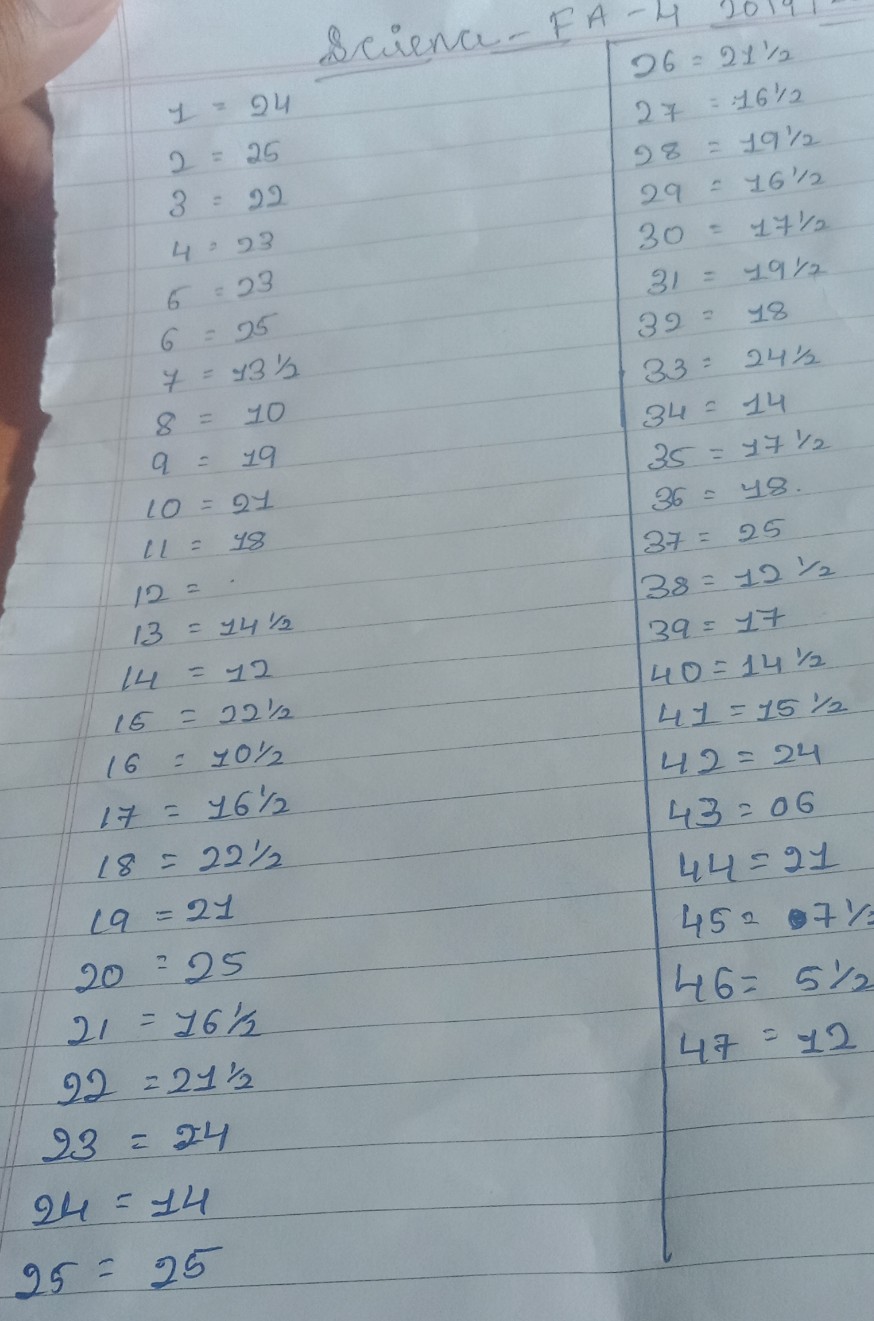 Science - FA - 4 2019
1 = 24
2 = 25
3 = 22
4 = 23
5 = 23
6 = 25
7 = 13 1/2
8 = 10
9 = 19
10 = 21
11 = 18
12 = .
13 = 14 1/2
14 = 12
15 = 22 1/2
16 = 10 1/2
17 = 16 1/2
18 = 22 1/2
19 = 21
20 = 25
21 = 16 1/2
22 = 21 1/2
23 = 24
24 = 14
25 = 25
26 = 21 1/2
27 = 16 1/2
28 = 19 1/2
29 = 16 1/2
30 = 17 1/2
31 = 19 1/2
32 = 18
33 = 24 1/2
34 = 14
35 = 17 1/2
36 = 18.
37 = 25
38 = 12 1/2
39 = 17
40 = 14 1/2
41 = 15 1/2
42 = 24
43 = 06
44 = 21
45 = 07 1/2
46 = 5 1/2
47 = 12